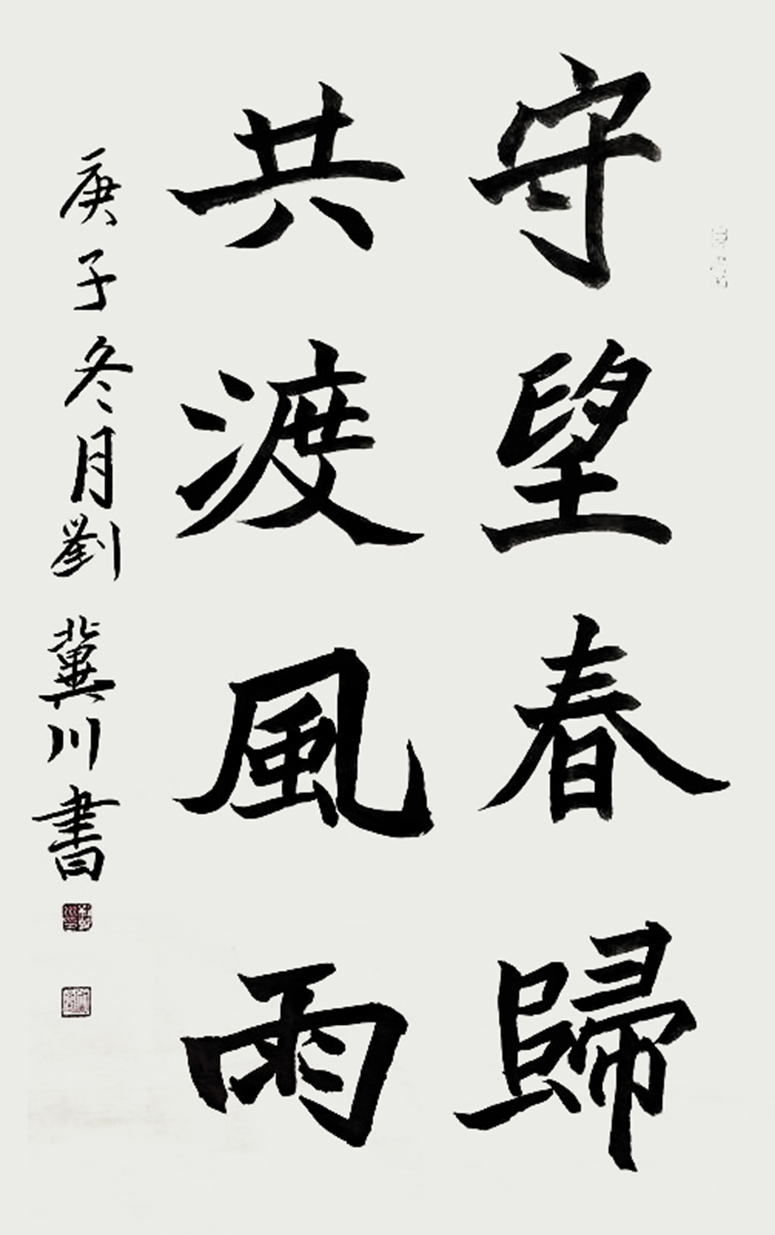 守望春歸
共渡風雨
庚子冬月劉冀川書